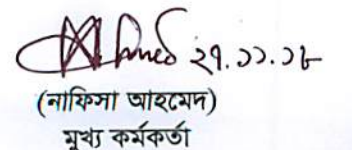 Ahmed ২৭.১১.১৮
(নাফিসা আহমেদ)
মুখ্য কর্মকর্তা